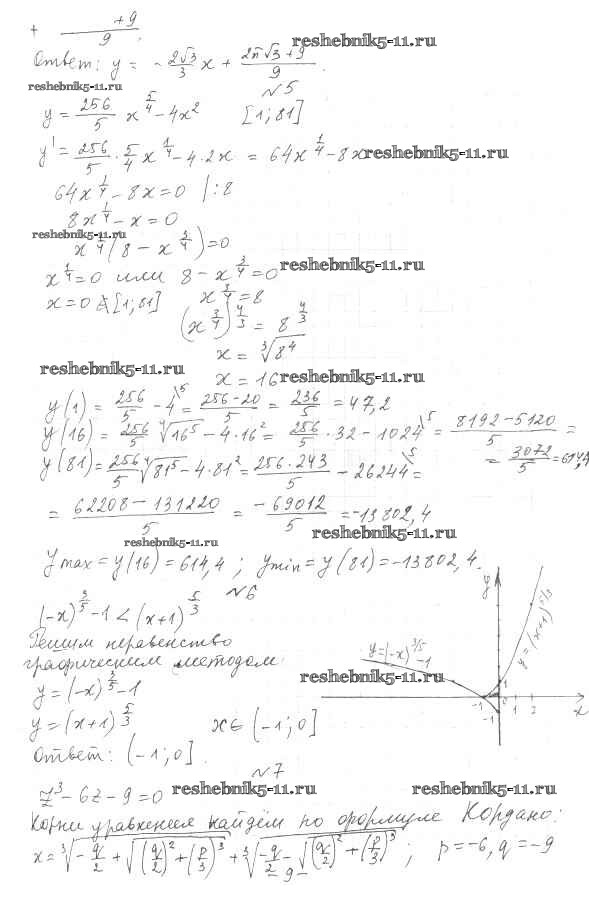 + +9/9.
Ответ: y = -2√3/3 x + (2π√3+9)/9.
reshebnik5-11.ru
reshebnik5-11.ru
№5
y = 256/5 x^(5/4) - 4x² [1; 81]
y' = 256/5 · 5/4 x^(1/4) - 4·2x = 64x^(1/4) - 8x
reshebnik5-11.ru
64x^(1/4) - 8x = 0 |:8
8x^(1/4) - x = 0
reshebnik5-11.ru
x^(1/4)(8 - x^(3/4)) = 0
x^(1/4) = 0 или 8 - x^(3/4) = 0
reshebnik5-11.ru
x = 0 ∉ [1; 81] x^(3/4) = 8
(x^(3/4))^(4/3) = 8^(4/3)
x = ³√8⁴
reshebnik5-11.ru
x = 16
reshebnik5-11.ru
y(1) = 256/5 - 4\5 = (256-20)/5 = 236/5 = 47,2
y(16) = 256/5 ⁴√16⁵ - 4·16² = 256/5 · 32 - 1024\5 = (8192-5120)/5 =
= 3072/5 = 614,4
y(81) = 256/5 ⁴√81⁵ - 4·81² = 256·243/5 - 26244\5 =
= (62208-131220)/5 = -69012/5 = -13802,4
reshebnik5-11.ru
reshebnik5-11.ru
ymax = y(16) = 614,4; ymin = y(81) = -13802,4.
№6
(-x)^(3/5) - 1 < (x+1)^(5/3)
Решим неравенство
графическим методом:
y = (-x)^(3/5) - 1
y = (x+1)^(5/3) x ∈ (-1; 0]
Ответ: (-1; 0].
y
y=(-x)^(3/5) -1
y=(x+1)^(5/3)
reshebnik5-11.ru
1
-1 0 1 2 x
-1
№7
z³ - 6z - 9 = 0
reshebnik5-11.ru
reshebnik5-11.ru
Корни уравнения найдём по формуле Кордано:
x = ³√(-q/2 + √((q/2)² + (p/3)³)) + ³√(-q/2 - √((q/2)² + (p/3)³)); p = -6, q = -9
- 9 -